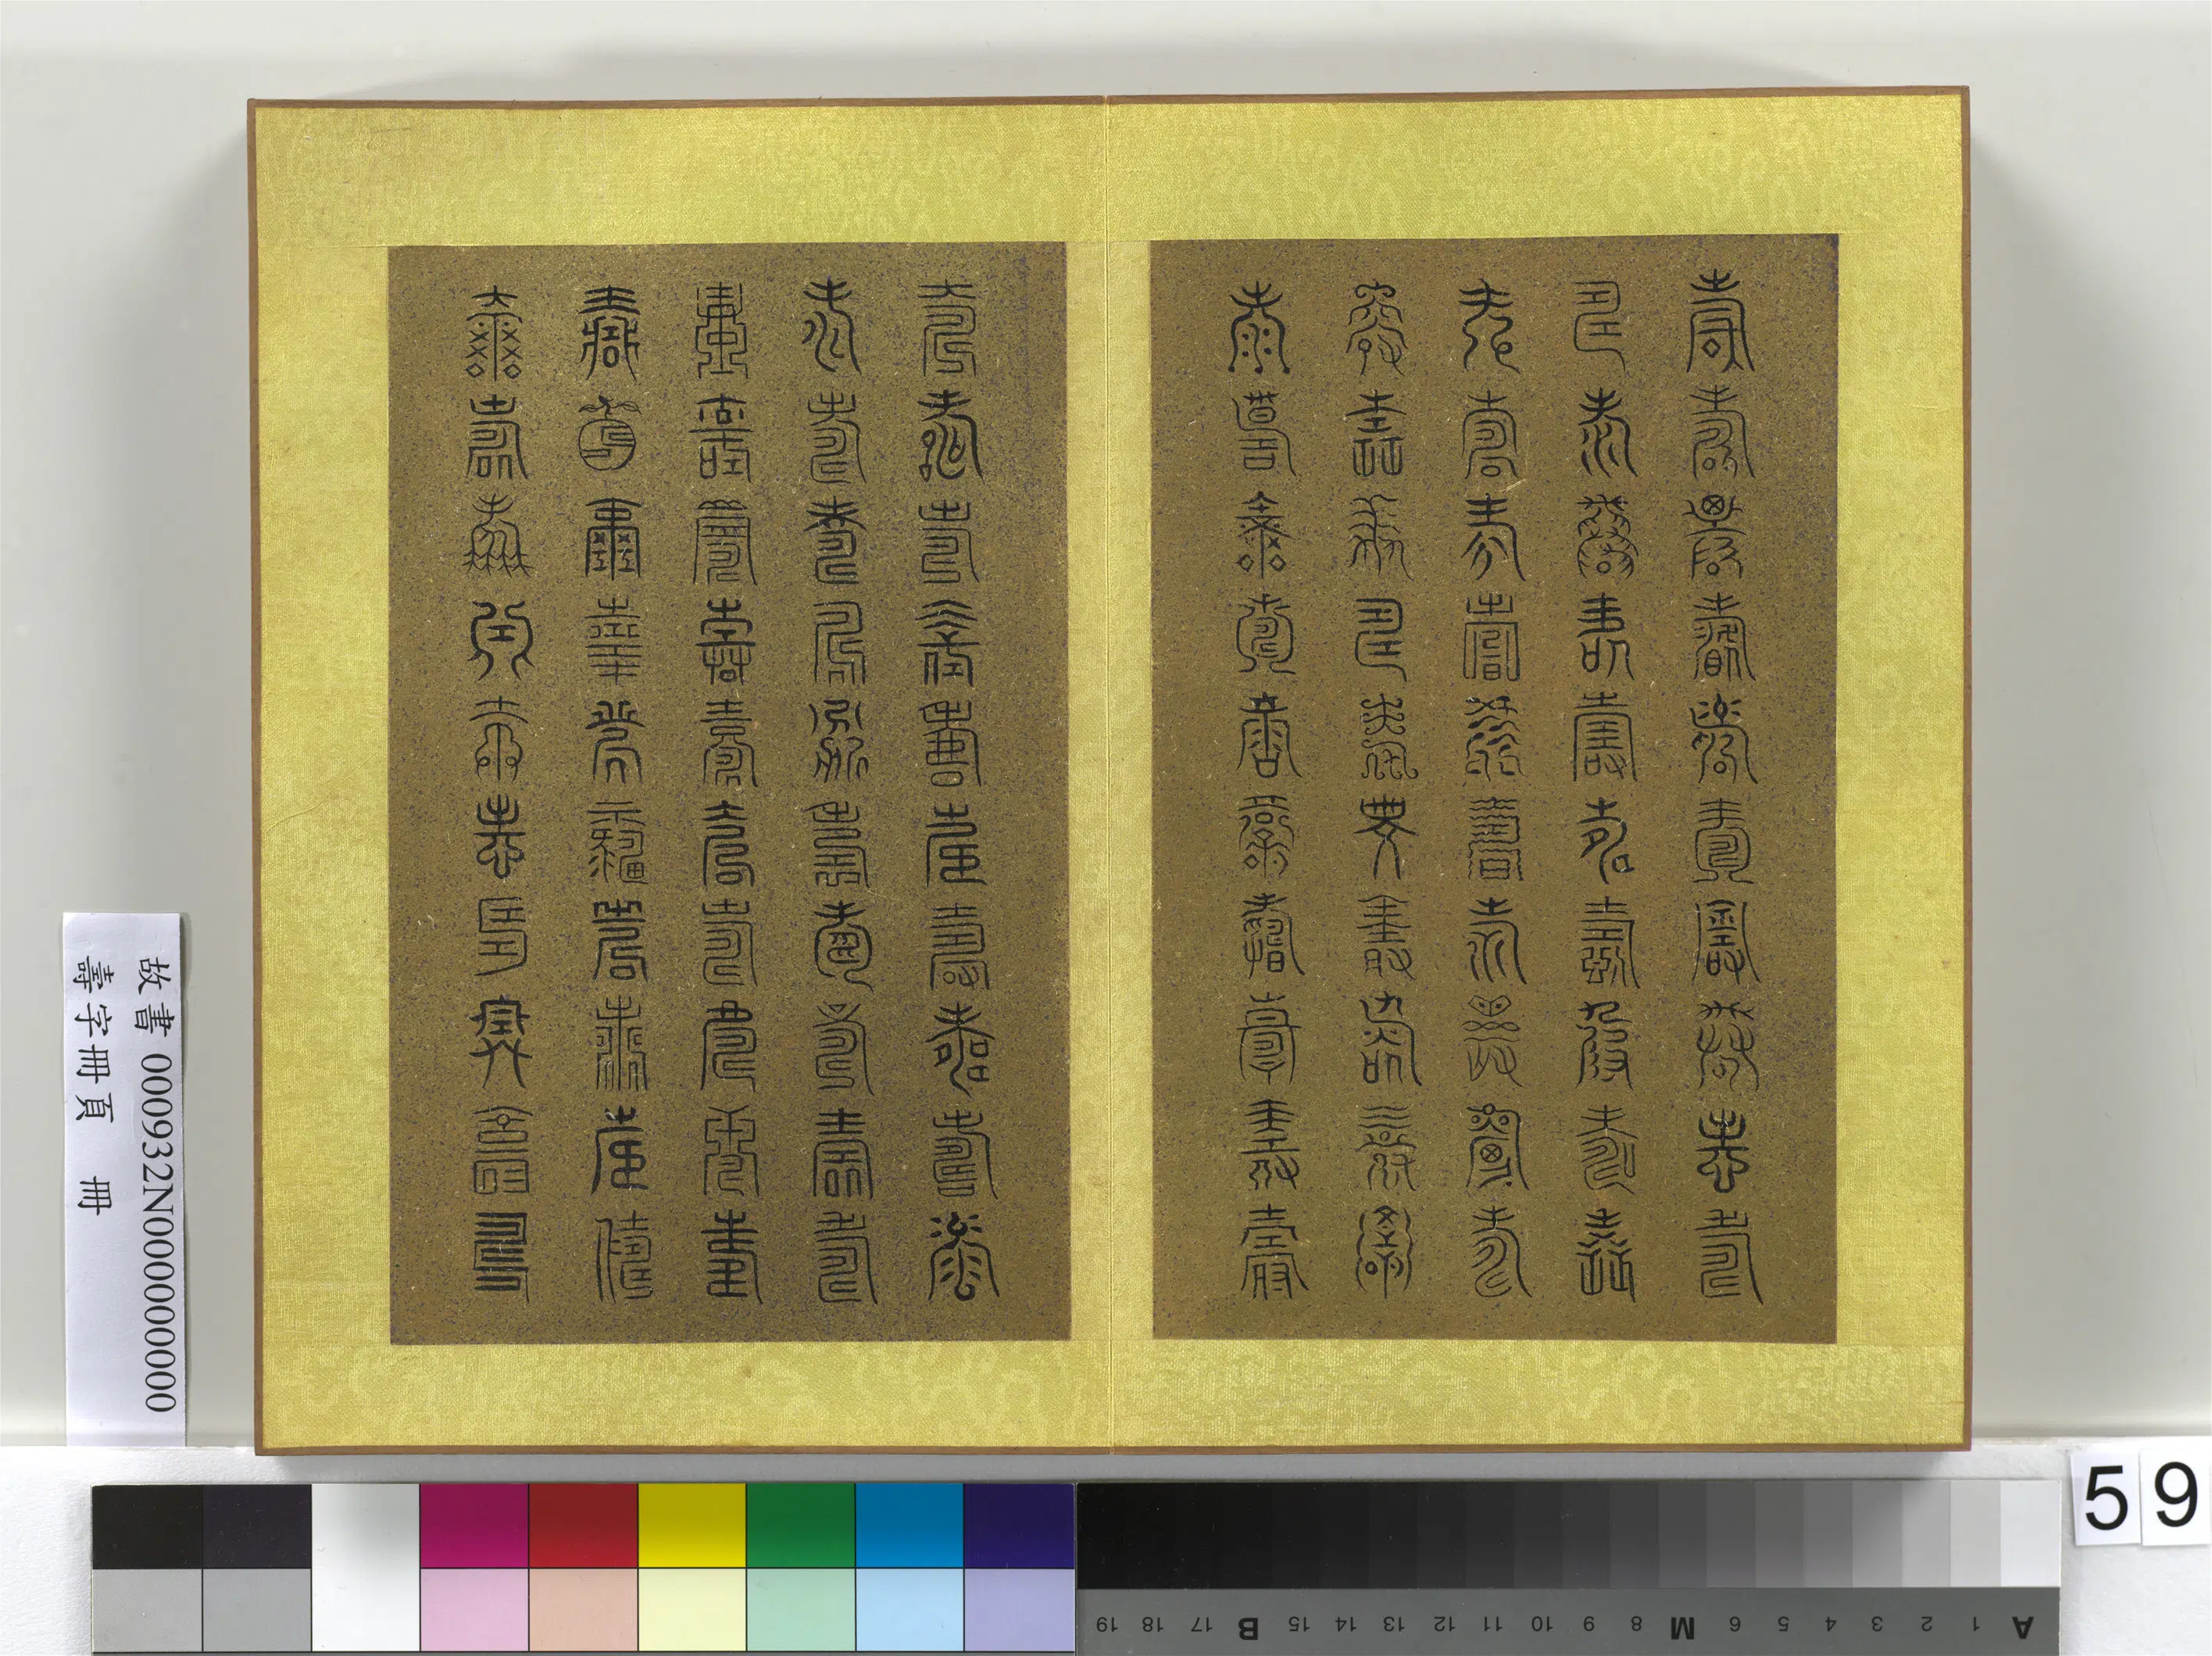 壽壽壽壽壽壽壽壽壽壽
壽壽壽壽壽壽壽壽壽壽
壽壽壽壽壽壽壽壽壽壽
壽壽壽壽壽壽壽壽壽壽
壽壽壽壽壽壽壽壽壽壽
壽壽壽壽壽壽壽壽壽壽
壽壽壽壽壽壽壽壽壽壽
壽壽壽壽壽壽壽壽壽壽
壽壽壽壽壽壽壽壽壽壽
壽壽壽壽壽壽壽壽壽壽
故書 000932N000000000
壽字冊頁 冊
59
A 1 2 3 4 5 6 M 8 9 10 11 12 13 14 15 B 17 18 19